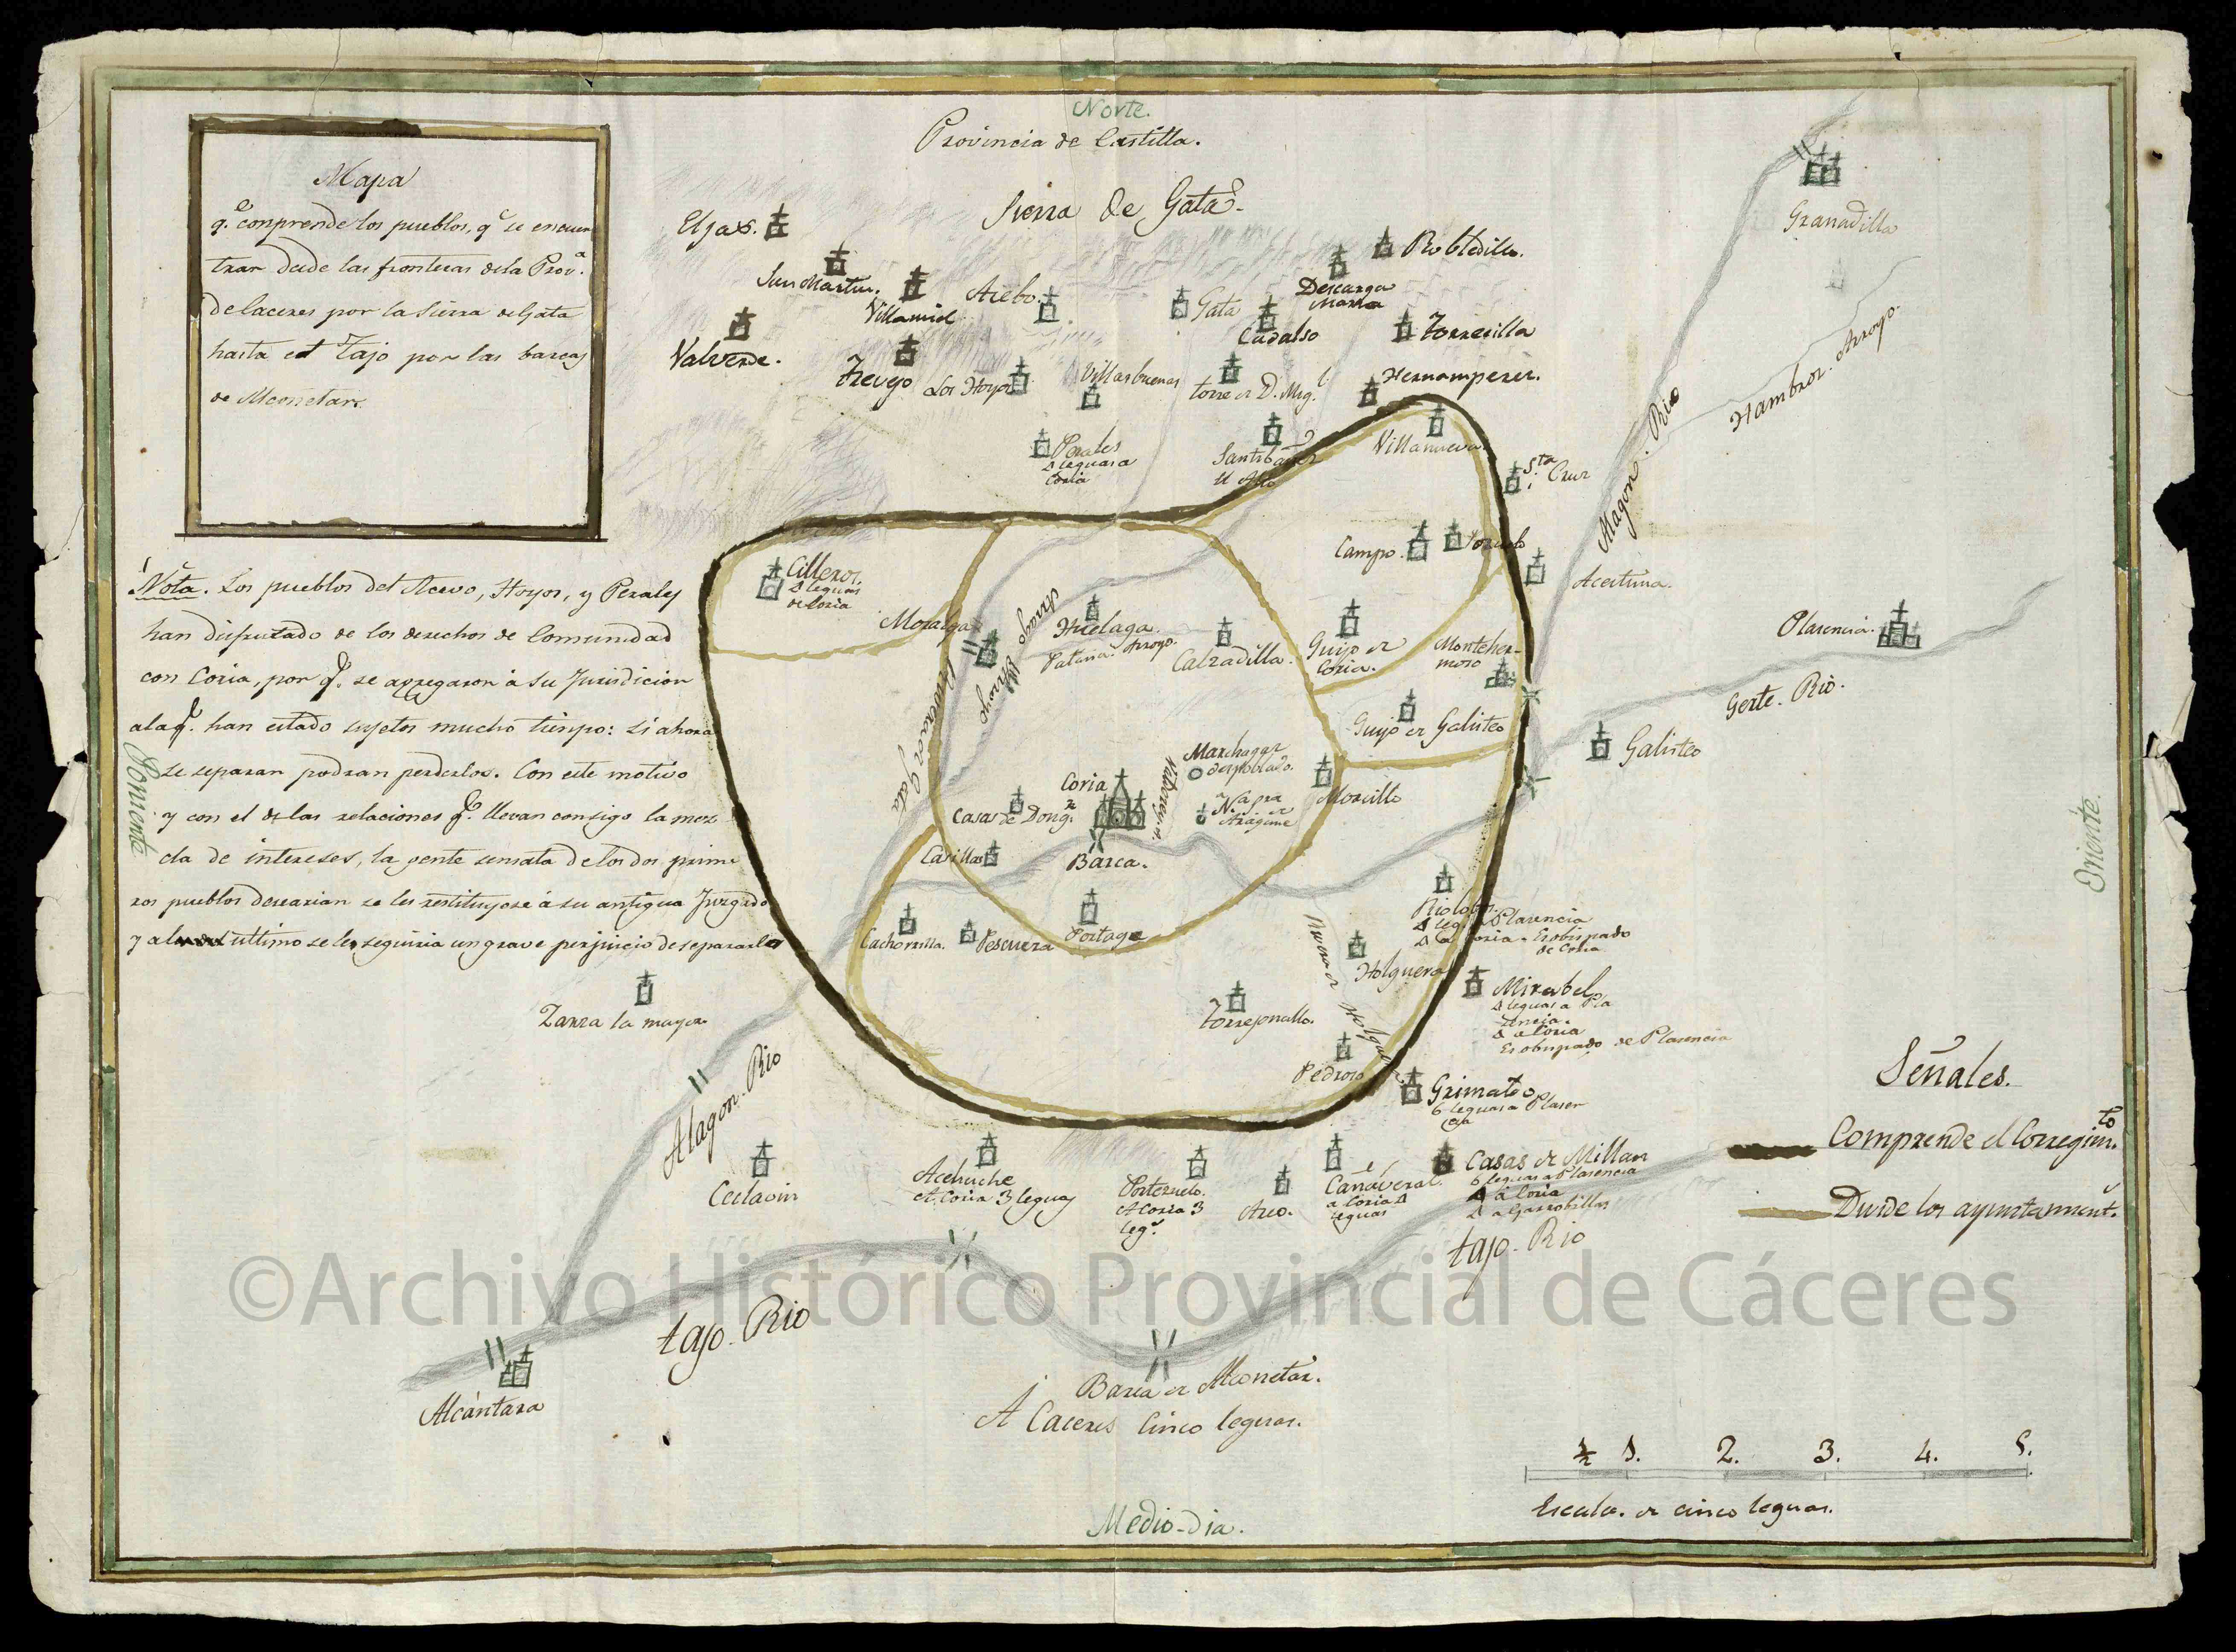 Norte.
Provincia de Castilla.
Sierra de Gata
Mapa
q.e conprende los pueblos, q.e se encuen
tran desde las fronteras de la Prov.a
de Caceres por la Sierra de Gata
hasta el Tajo por las barcas
de Alconetar.
Nota. Los pueblos del Acevo, Hoyos, y Perales
han disfrutado de los derechos de Comunidad
con Coria, por q.e se agregaron á su Jurisdicion
a la q.e han estado sujetos mucho tiempo: si ahora
se separan podran perderlos. Con este motivo
y con el de las relaciones q.e llevan consigo la mez
cla de intereses, la gente sensata de los dos prime
ros pueblos desearian se les restituyese á su antigua Juzgado
y al ultimo se les seguiria un grave perjuicio de separarles
Poniente
Eljas.
San Martin.
Villamiel
Acebo.
Gata
Descarga
Maria
Robledillo.
Cadalso
Torrecilla
Valverde.
Trevejo
Los Hoyos
Villasbuenas
Torre de D. Mig.l
Hernamperez.
Perales
4 leguas a
Coria
Santibañez
el Alto
Villanueva.
S.ta Cruz
Granadilla
Hambroz. Arroyo.
Alagon. Rio
Campo.
Pozuelo
Aceituna.
Cilleros.
4 leguas
de Coria
Moraleja
Huelaga.
Patana. Arroyo.
Arroyo
Calzadilla.
Guijo de
Coria.
Monteher-
moso
Plasencia.
Gerte. Rio.
Guijo de Galisteo
Galisteo
Marchagaz
despoblado.
Coria
Casas de D.n Gom.z
N.a
Morcillo
Casillas
Barca.
Riolobos.
Plasencia
Esobispado
de Coria
Cachorrilla.
Pescueza
Portage
Holguera
Mirabel
4 leguas a Pla
sencia.
4 a Coria
Esobispado de Plasencia
Zarza la mayor
Torrejoncillo.
Pedroso
Grimaldo
6 leguas a Plasen
cia
Alagon. Rio
Ceclavin
Acehuche
A Coria 3 leguas
Portezuelo.
A Coria 3
leg.s
Arco.
Cañaveral.
a Coria 4
leguas
Casas de Millan
6 leguas a Plasencia
4 a Coria
4 a Garrobillas
Tajo. Rio
Tajo. Rio
Alcántara
Barca de Alconetar.
A Caceres Cinco leguas.
Oriente.
Señales.
Comprende el Corregim.to
Divide los ayuntamient.s
½ 1. 2. 3. 4. 5.
Escala. de cinco leguas.
Medio-dia.
©Archivo Histórico Provincial de Cáceres